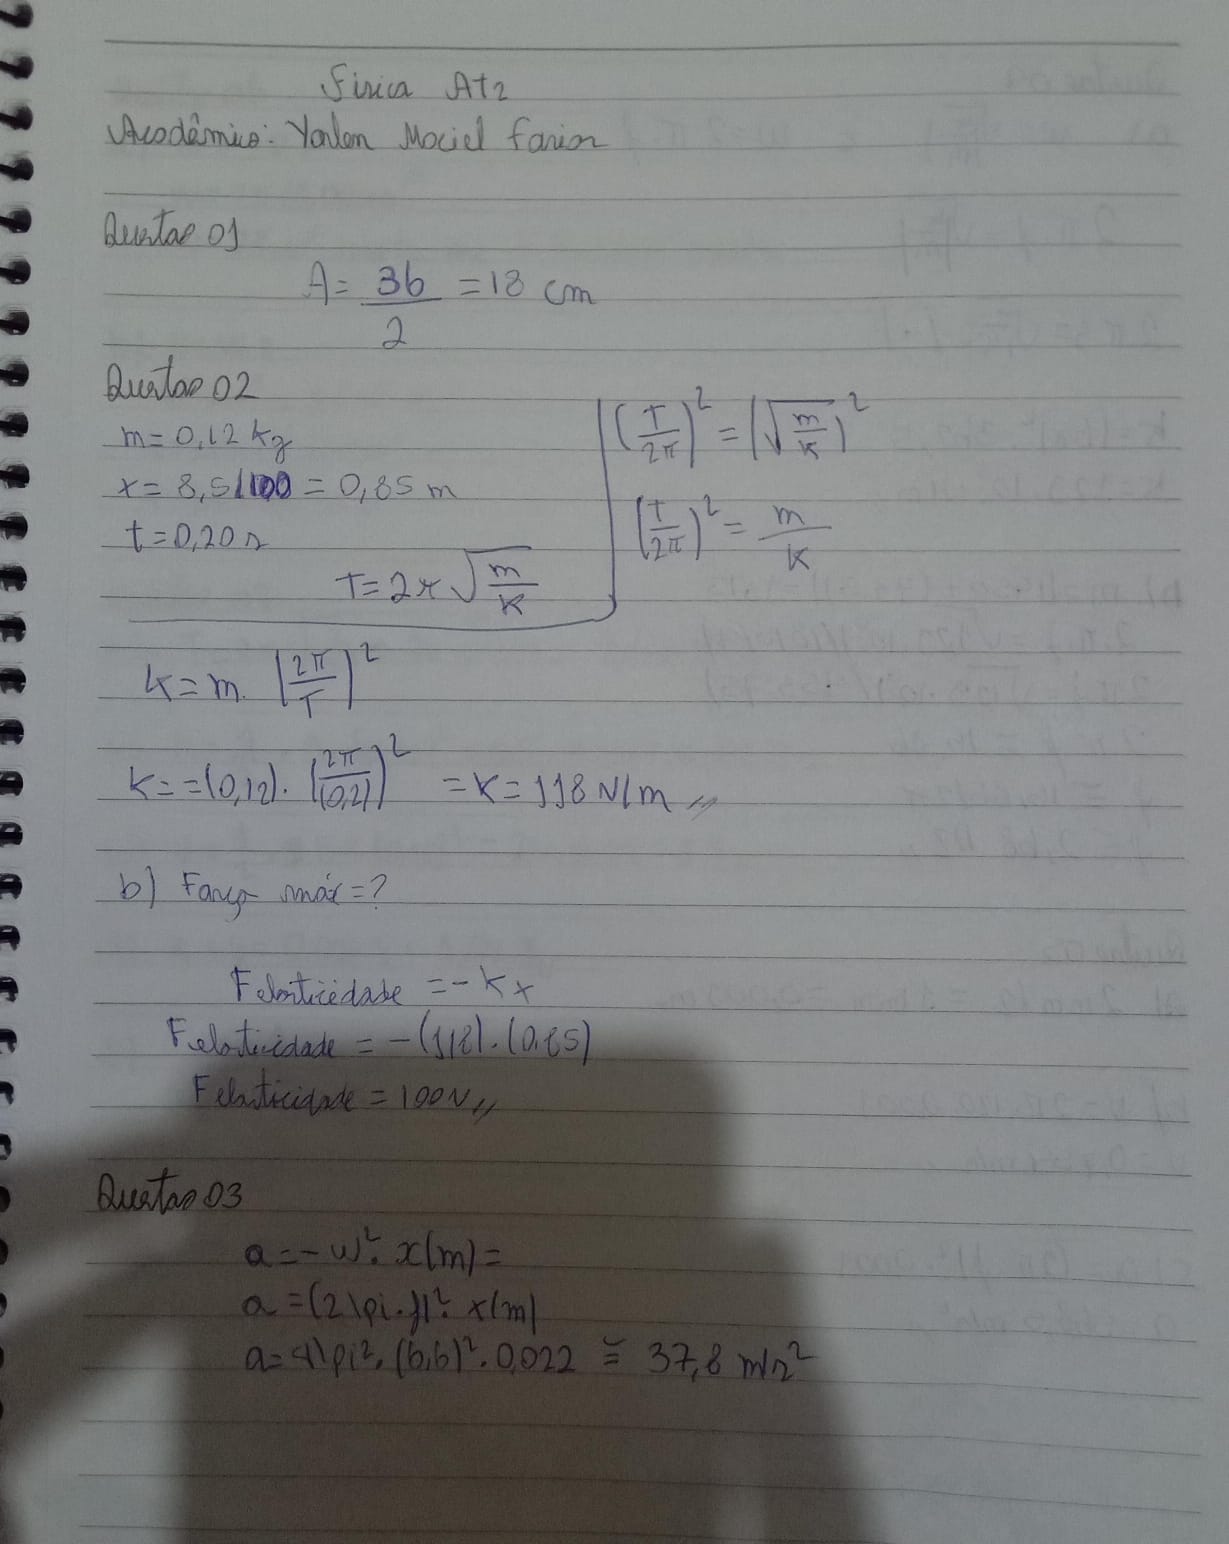 Física At2
Acadêmico: Yorlen Maciel Farior
Questao 01
A = 36/2 = 18 cm
Questao 02
m = 0,12 kg
x = 8,5/100 = 0,85 m
t = 0,20 s
T = 2π √(m/K)
(T/2π)² = (√(m/K))²
(T/2π)² = m/K
K = m. (2π/T)²
K = = (0,12). (2π/(0,2))² = K = 118 N/m //
b) Força máx = ?
Felasticidade = - K x
Felasticidade = - (118). (0,85)
Felasticidade = 100N //
Questao 03
a = - w². x(m) =
a = (2\pi.f)². x(m)
a = 4\pi². (6,6)². 0,022 ≅ 37,8 m/s²